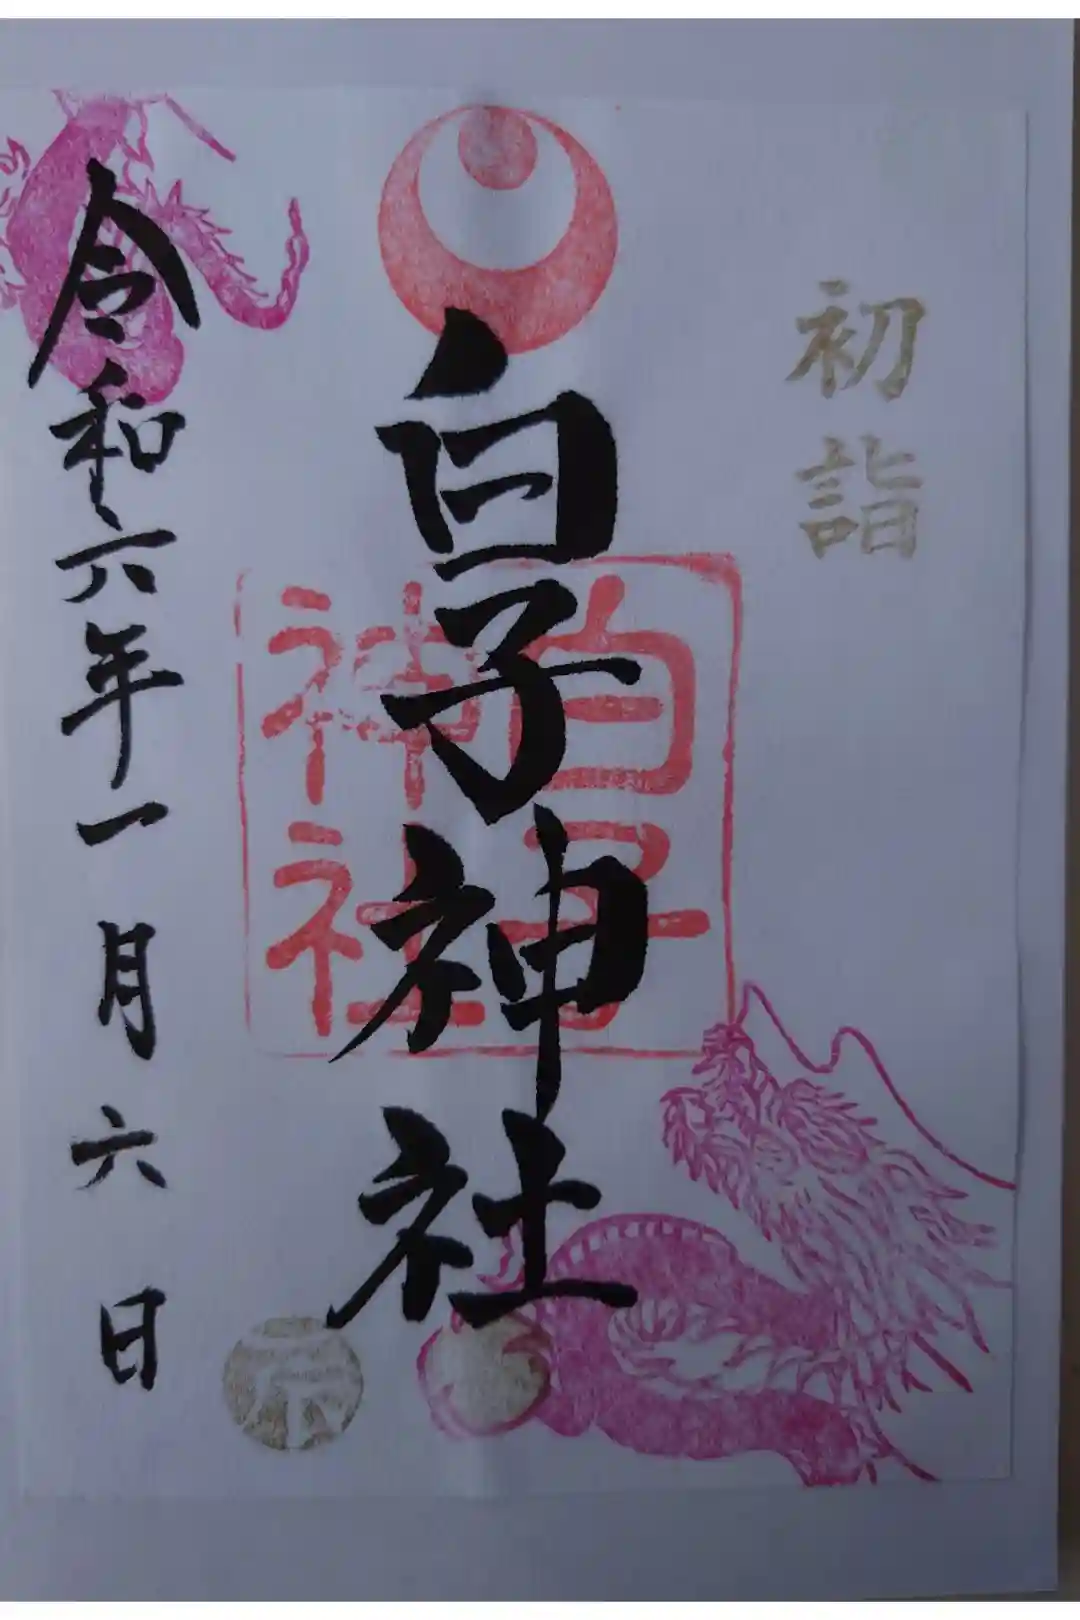 初詣
白子神社
白子
神社
令和六年一月六日